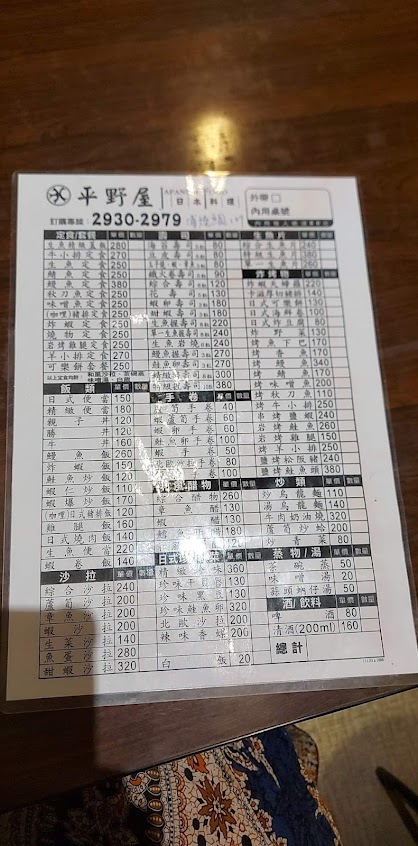 平野屋
日本料理
外帶□
內用桌號
訂購專線：2930-2979
定食/套餐 單價 數量
生魚精緻蓋飯 280
牛小排定食 270
生魚定食 250
鯖魚定食 250
鰻魚定食 380
秋刀魚定食 250
味噌魚定食 250
(咖哩)豬排定食 250
炸蝦定食 250
燒物定食 250
岩烤雞腿定食 250
羊小排定食 270
可樂餅套餐 250
飯類 單價 數量
日式便當 150
精緻便當 180
親子丼 120
勝丼 120
牛丼 160
鰻魚飯 260
炸蝦飯 150
鮭魚炒飯 150
蝦仁炒飯 110
蝦爆炒飯 170
(咖哩)日式豬排飯 160
雞腿飯 160
日式燒肉飯 140
生魚便當 220
蝦卷飯 140
沙拉 單價 數量
綜合沙拉 240
蘆筍沙拉 200
章魚沙拉 200
蝦沙拉 200
生菜沙拉 140
魚蛋沙拉 280
甜蝦沙拉 320
壽司 單價 數量
海苔壽司 80
豆皮壽司 80
鐵火卷壽司 90
綜合壽司 120
花壽司 130
蝦卵壽司 180
甜蝦壽司 180
生魚握壽司 220
生魚岩燒 240
鰻魚握壽司 270
鮭魚握壽司 200
手卷 單價 數量
蘆筍手卷 40
蝦蘆筍手卷 60
蝦卵手卷 60
鮭魚卵手卷 100
生魚手卷 100
綜合醋物 260
章魚醋 130
蝦醋 130
精緻小菜 360
珍味中卷 180
珍味黑豆 130
珍味鮭魚卵 320
北歐沙拉 200
辣味香螺 200
白飯 20
生魚片 單價 數量
綜合生魚片 240
特級生魚片 380
鮭魚生魚片 260
炸烤物 單價 數量
炸蝦天婦羅 220
卡滋厚切豬排 120
日式可樂餅 130
日式海鮮卷 100
日式炸豆腐 80
炸野菜 130
烤魚下巴 170
烤香魚 170
烤鰻魚 340
烤味噌魚 200
烤秋刀魚 110
烤牛小排 250
串烤鹽蝦 240
岩烤鮭魚 260
岩烤雞腿 150
鹽烤松阪豬 240
鹽烤鮭魚頭 380
炒類 單價 數量
炒烏龍麵 110
湯烏龍麵 140
牛肉奶油燒 320
蘆筍炒蛤 200
炒青菜 80
蒸物/湯 單價 數量
茶碗蒸 50
味噌湯 20
蒜頭蜆仔湯 50
酒/飲料 單價 數量
啤酒 80
清酒(200ml) 160
總計